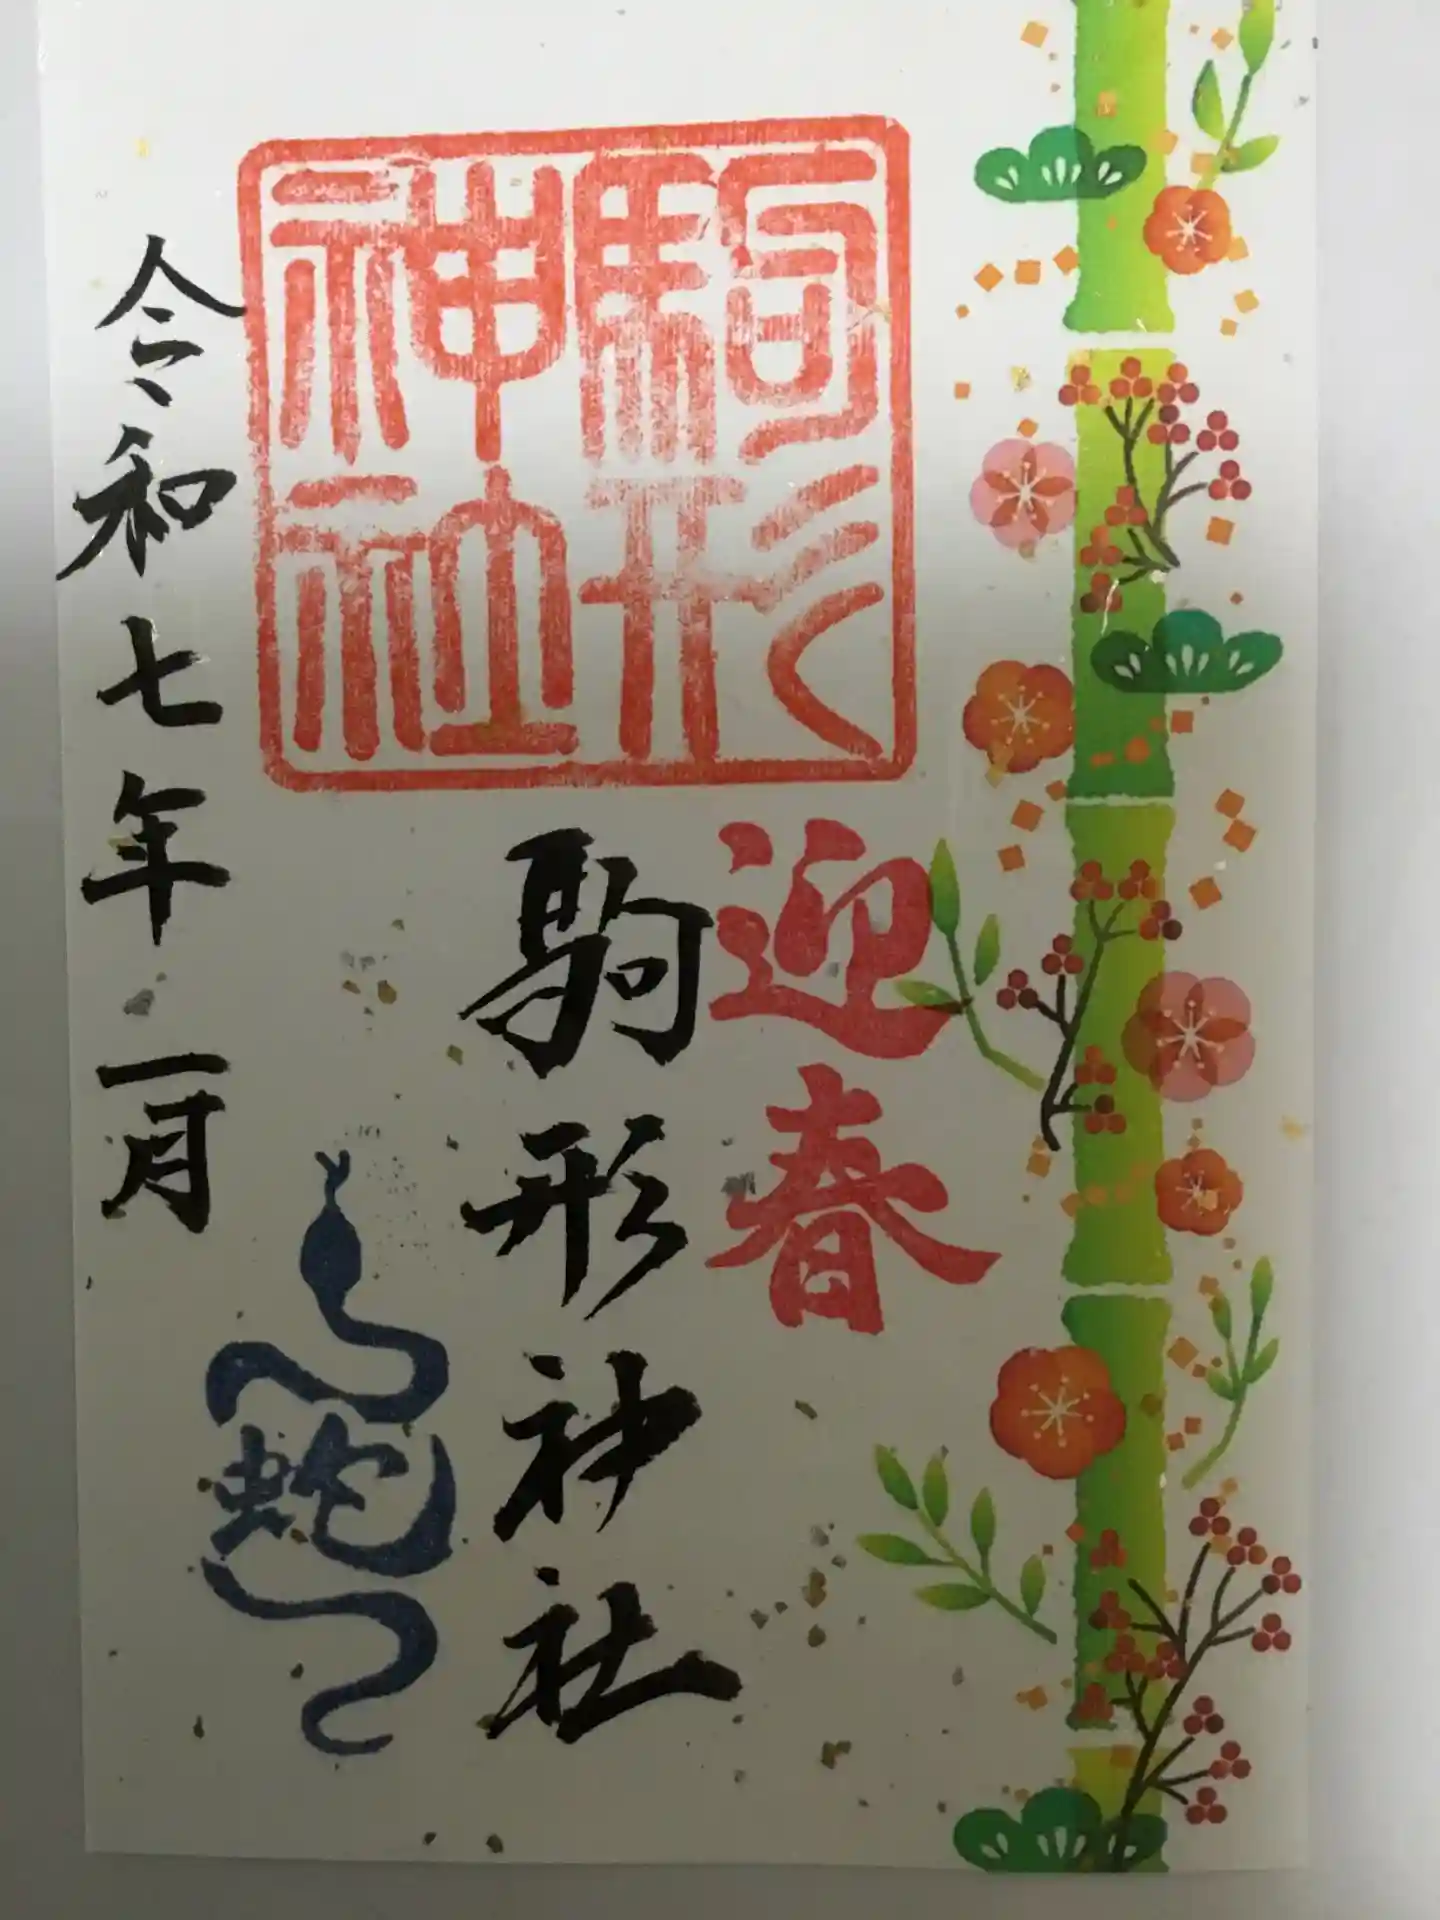 駒形
神社
迎春
駒形神社
蛇
令和七年一月